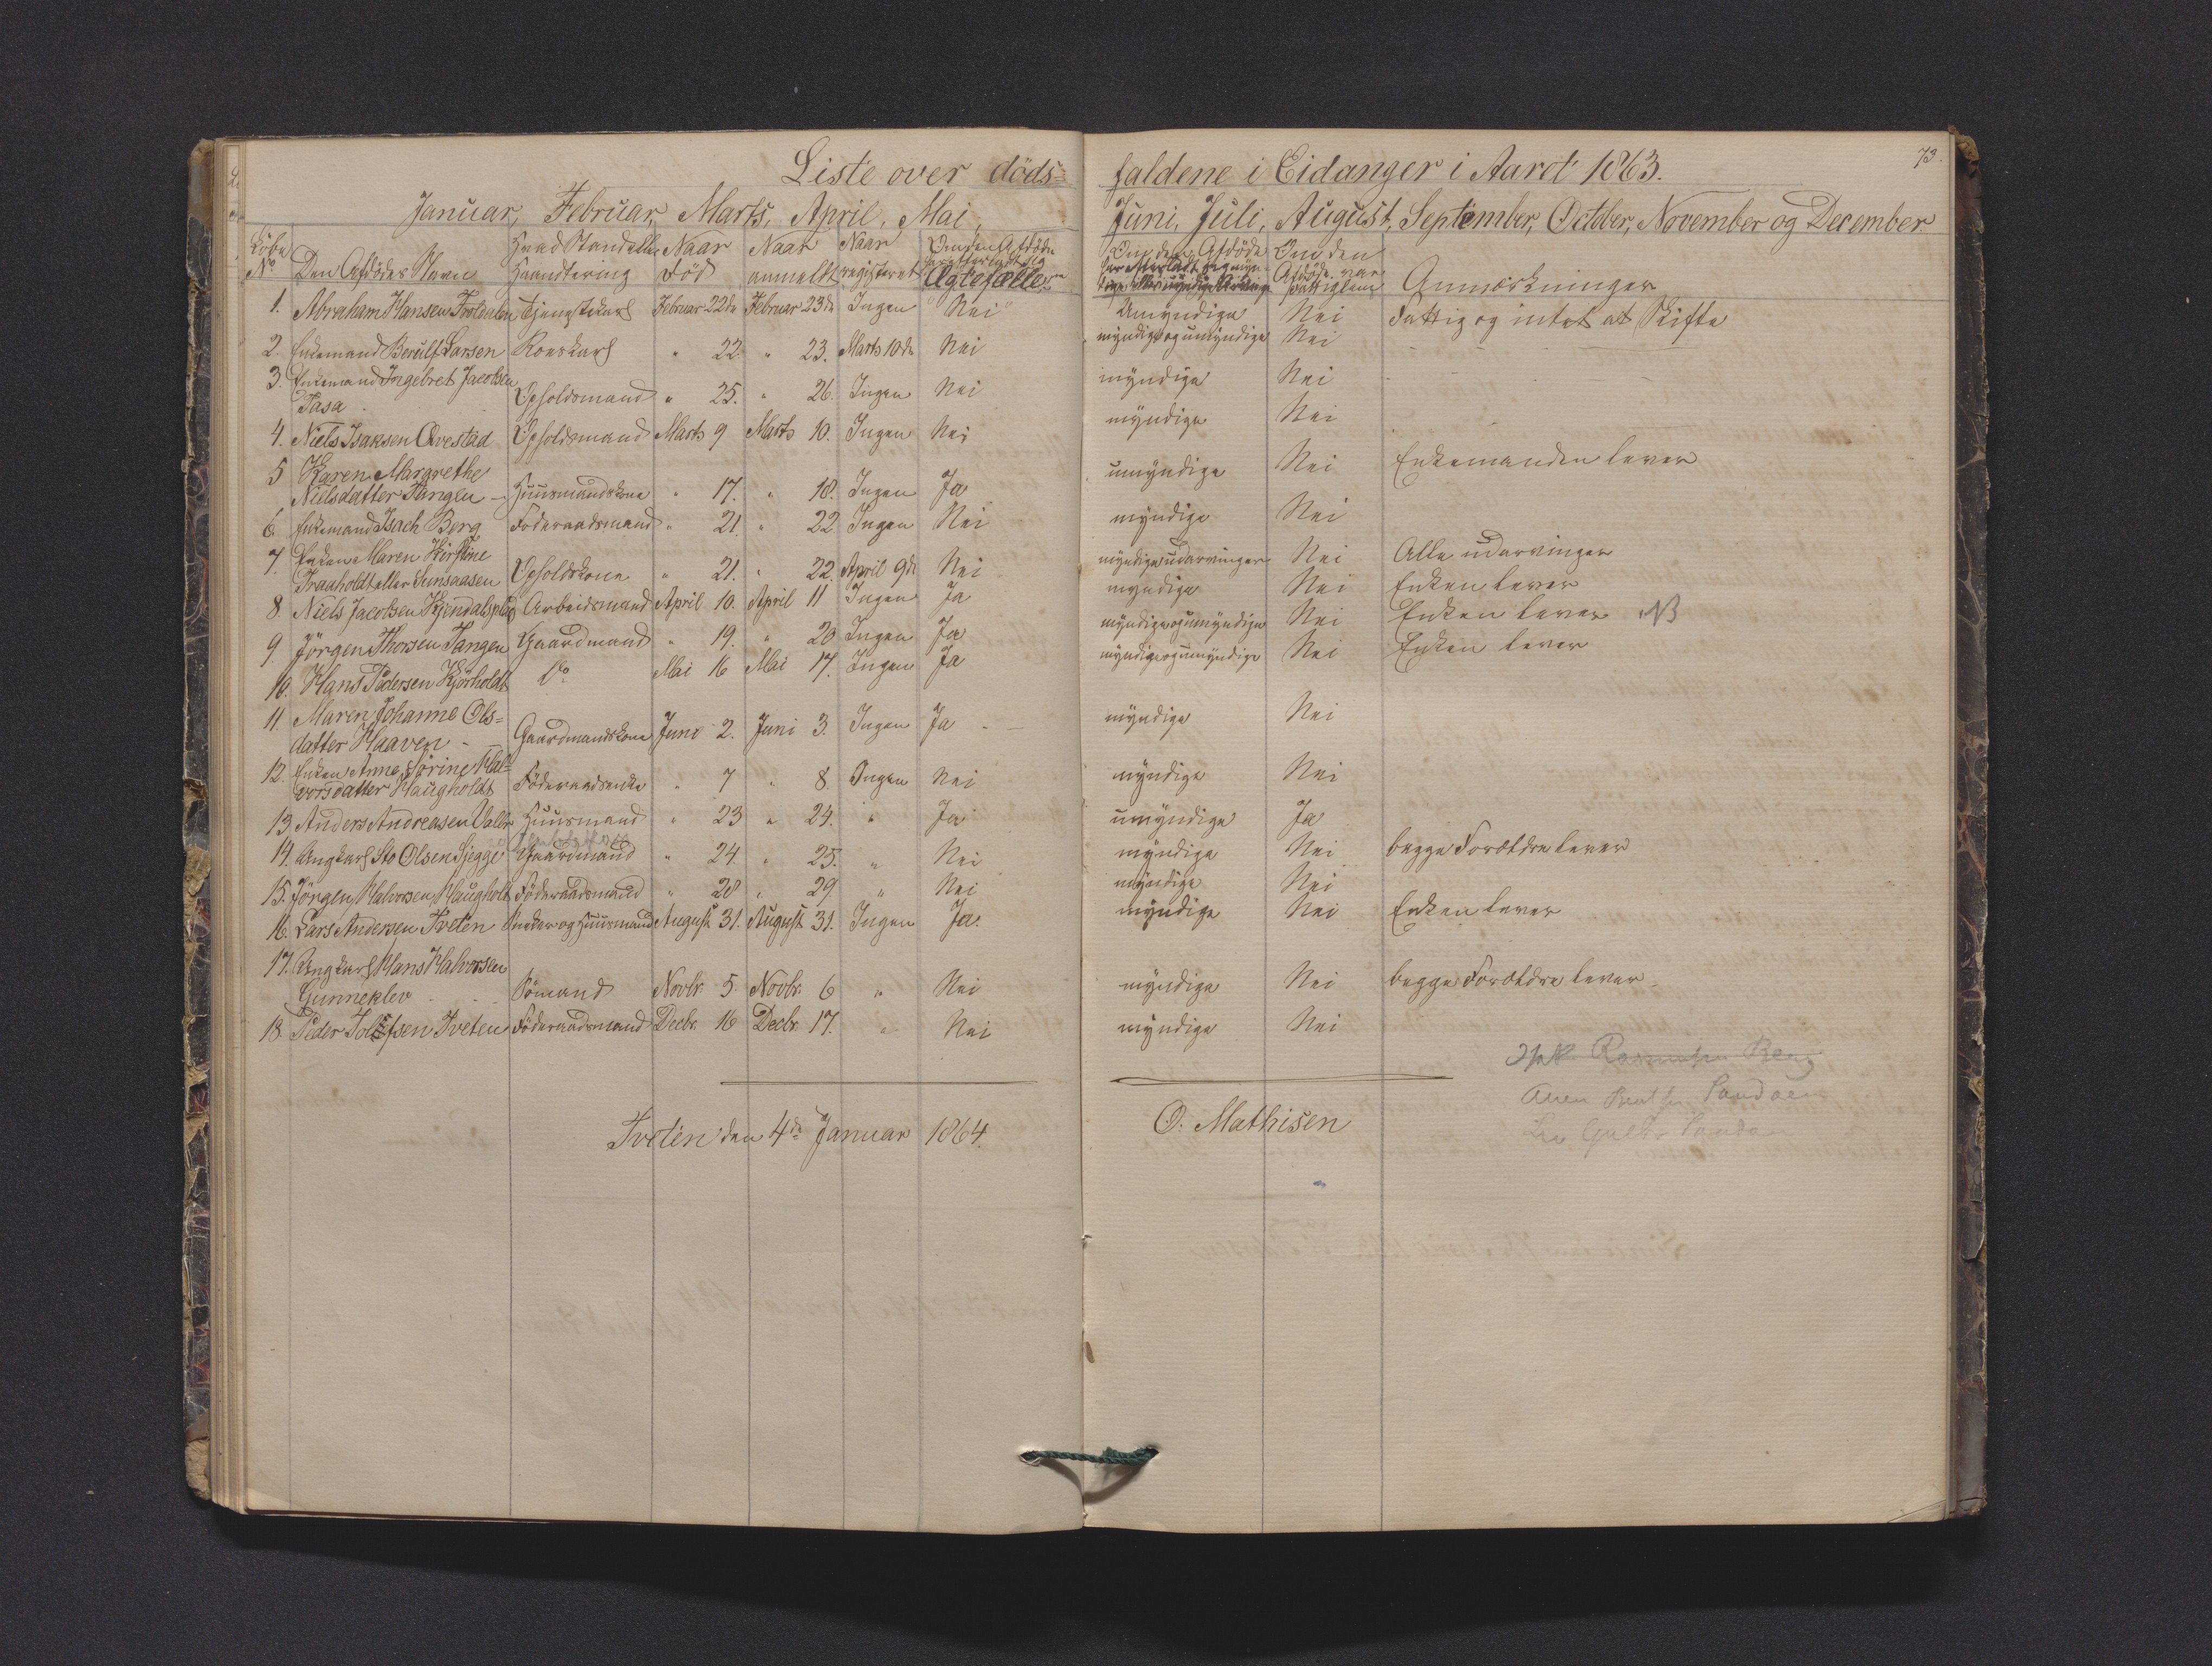 Liste over döds= faldene i Eidanger i Aaret 1863. 73.
Januar, Februar, Marts, April, Mai Juni, Juli, August, September, October, November og December
Löbe No Den Afdödes Navn Hvad Stand eller Haandtering Naar Död Naar anmeldt Naar registeret Om den Afdöde har efterladt sig Ægtefælle Om den Afdöde har efterladt sig myndige eller umyndige Arvinger Om den Afdöde var fattiglem Anmærkninger
1. Abraham Hansen Tveldalen Tjenestekarl Februar 22de Februar 23de Ingen Nei Umyndige Nei Fattig og intet at Skifte
2. Enkemand Berulf Larsen Roerskarl " 22. " 23. Marts 10de Nei myndige og umyndige Nei
3. Enkemand Ingebret Jacobsen
Tasa Opholdsmand " 25. " 26. Ingen Nei myndige Nei
4. Niels Isaksen Ovestad Opholdsmand Marts 9 Marts 10. Ingen Nei myndige Nei
5 Karen Margrethe
Nielsdatter Tangen Huusmandskone " 17. " 18. Ingen Ja umyndige Nei Enkemanden lever
6. Enkemand Isach Berg Föderaadsmand " 21. " 22 Ingen Nei myndige Nei
7. Enken Maren Kirstine
Traaholdt eller Sunsaasen Opholdskone " 21. " 22. April 9de Nei myndige udarvinger Nei Alle udarvinger
8 Niels Jacobsen Kjendalsplds Arbeidsmand April 10. April 11 Ingen Ja myndige Nei Enken lever
9. Jörgen Thorsen Tangen Gaardmand " 19. " 20 Ingen Ja myndige og umyndige Nei Enken lever NB
10. Hans Pedersen Kjörholdt Do Mai 16 Mai 17. Ingen Ja myndige og umyndige Nei Enken lever
11 Maren Johanne Ols=
datter Haaven - Gaardmandskone Juni 2. Juni 3. Ingen Ja myndige Nei
12. Enken Anne Sörine Hal=
vorsdatter Haugholdt Föderaadsenke " 7 " 8. Ingen Nei myndige Nei
13 Anders Andreasen Valler Huusmand " 23 " 24. " Ja umyndige Ja
14. Ungkarl Sto Olsen Sjegge Gaardmand " 24 " 25. " Nei myndige Nei begge Forældre lever
15. Jörgen Halvorsen Haugholt Föderaadsmand " 28 " 29 " Nei myndige Nei
16. Lars Andersen Tveten Sneker og Huusmand August 31. August 31. Ingen Ja. myndige Nei Enken lever
17. Ungkarl Hans Halvorsen
Gunneklev Sömand Novbr. 5. Novbr. 6 " Nei myndige Nei begge Forældre lever
18. Peder Tollefsen Tveten Föderaadsmand Decbr. 16 Decbr. 17. " Nei myndige Nei
Tveten den 4de Januar 1864. O. Mathisen